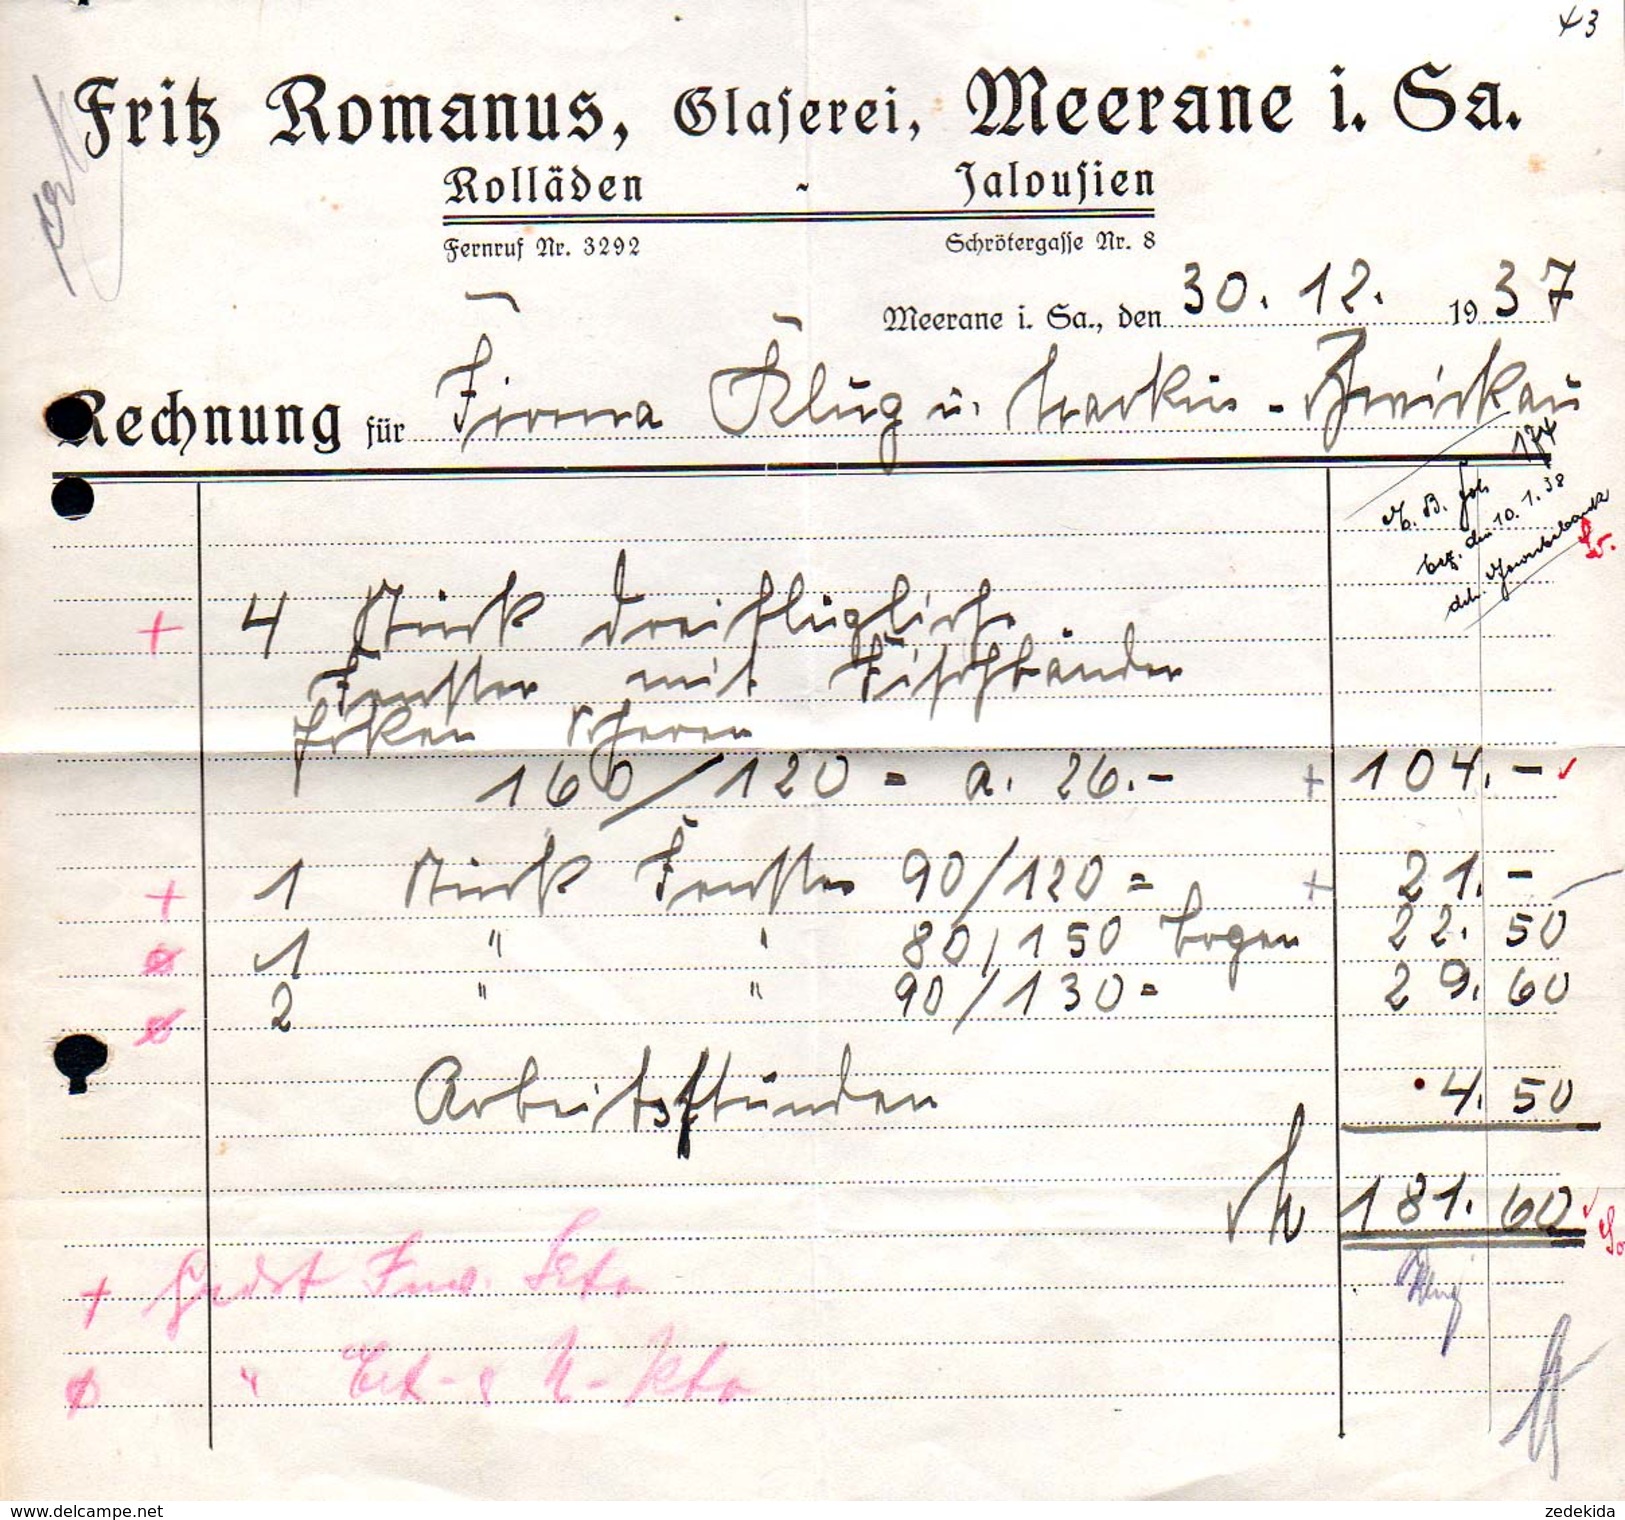 43
Fritz Romanus, Glaserei, Meerane i. Sa.
Rolläden - Jalousien
Fernruf Nr. 3292 Schrötergasse Nr. 8
Meerane i. Sa., den 30. 12. 1937
Rechnung für Firma Klug u. - Zwickau
174
bez. den 10. 1. 38
dch.
4 Stück dreiflügliche
Fenster mit Fischbänder
Ecken Scheren
160/120 = a. 26.- + 104.-
+
1 Stück Fenster 90/120 = + 21.-
+
1 " " 80/150 Bogen 22. 50
2 " " 90/130 = 29. 60
Arbeitsstunden 4. 50
181. 60
+
" - Kto
www.delcampe.net zedekida